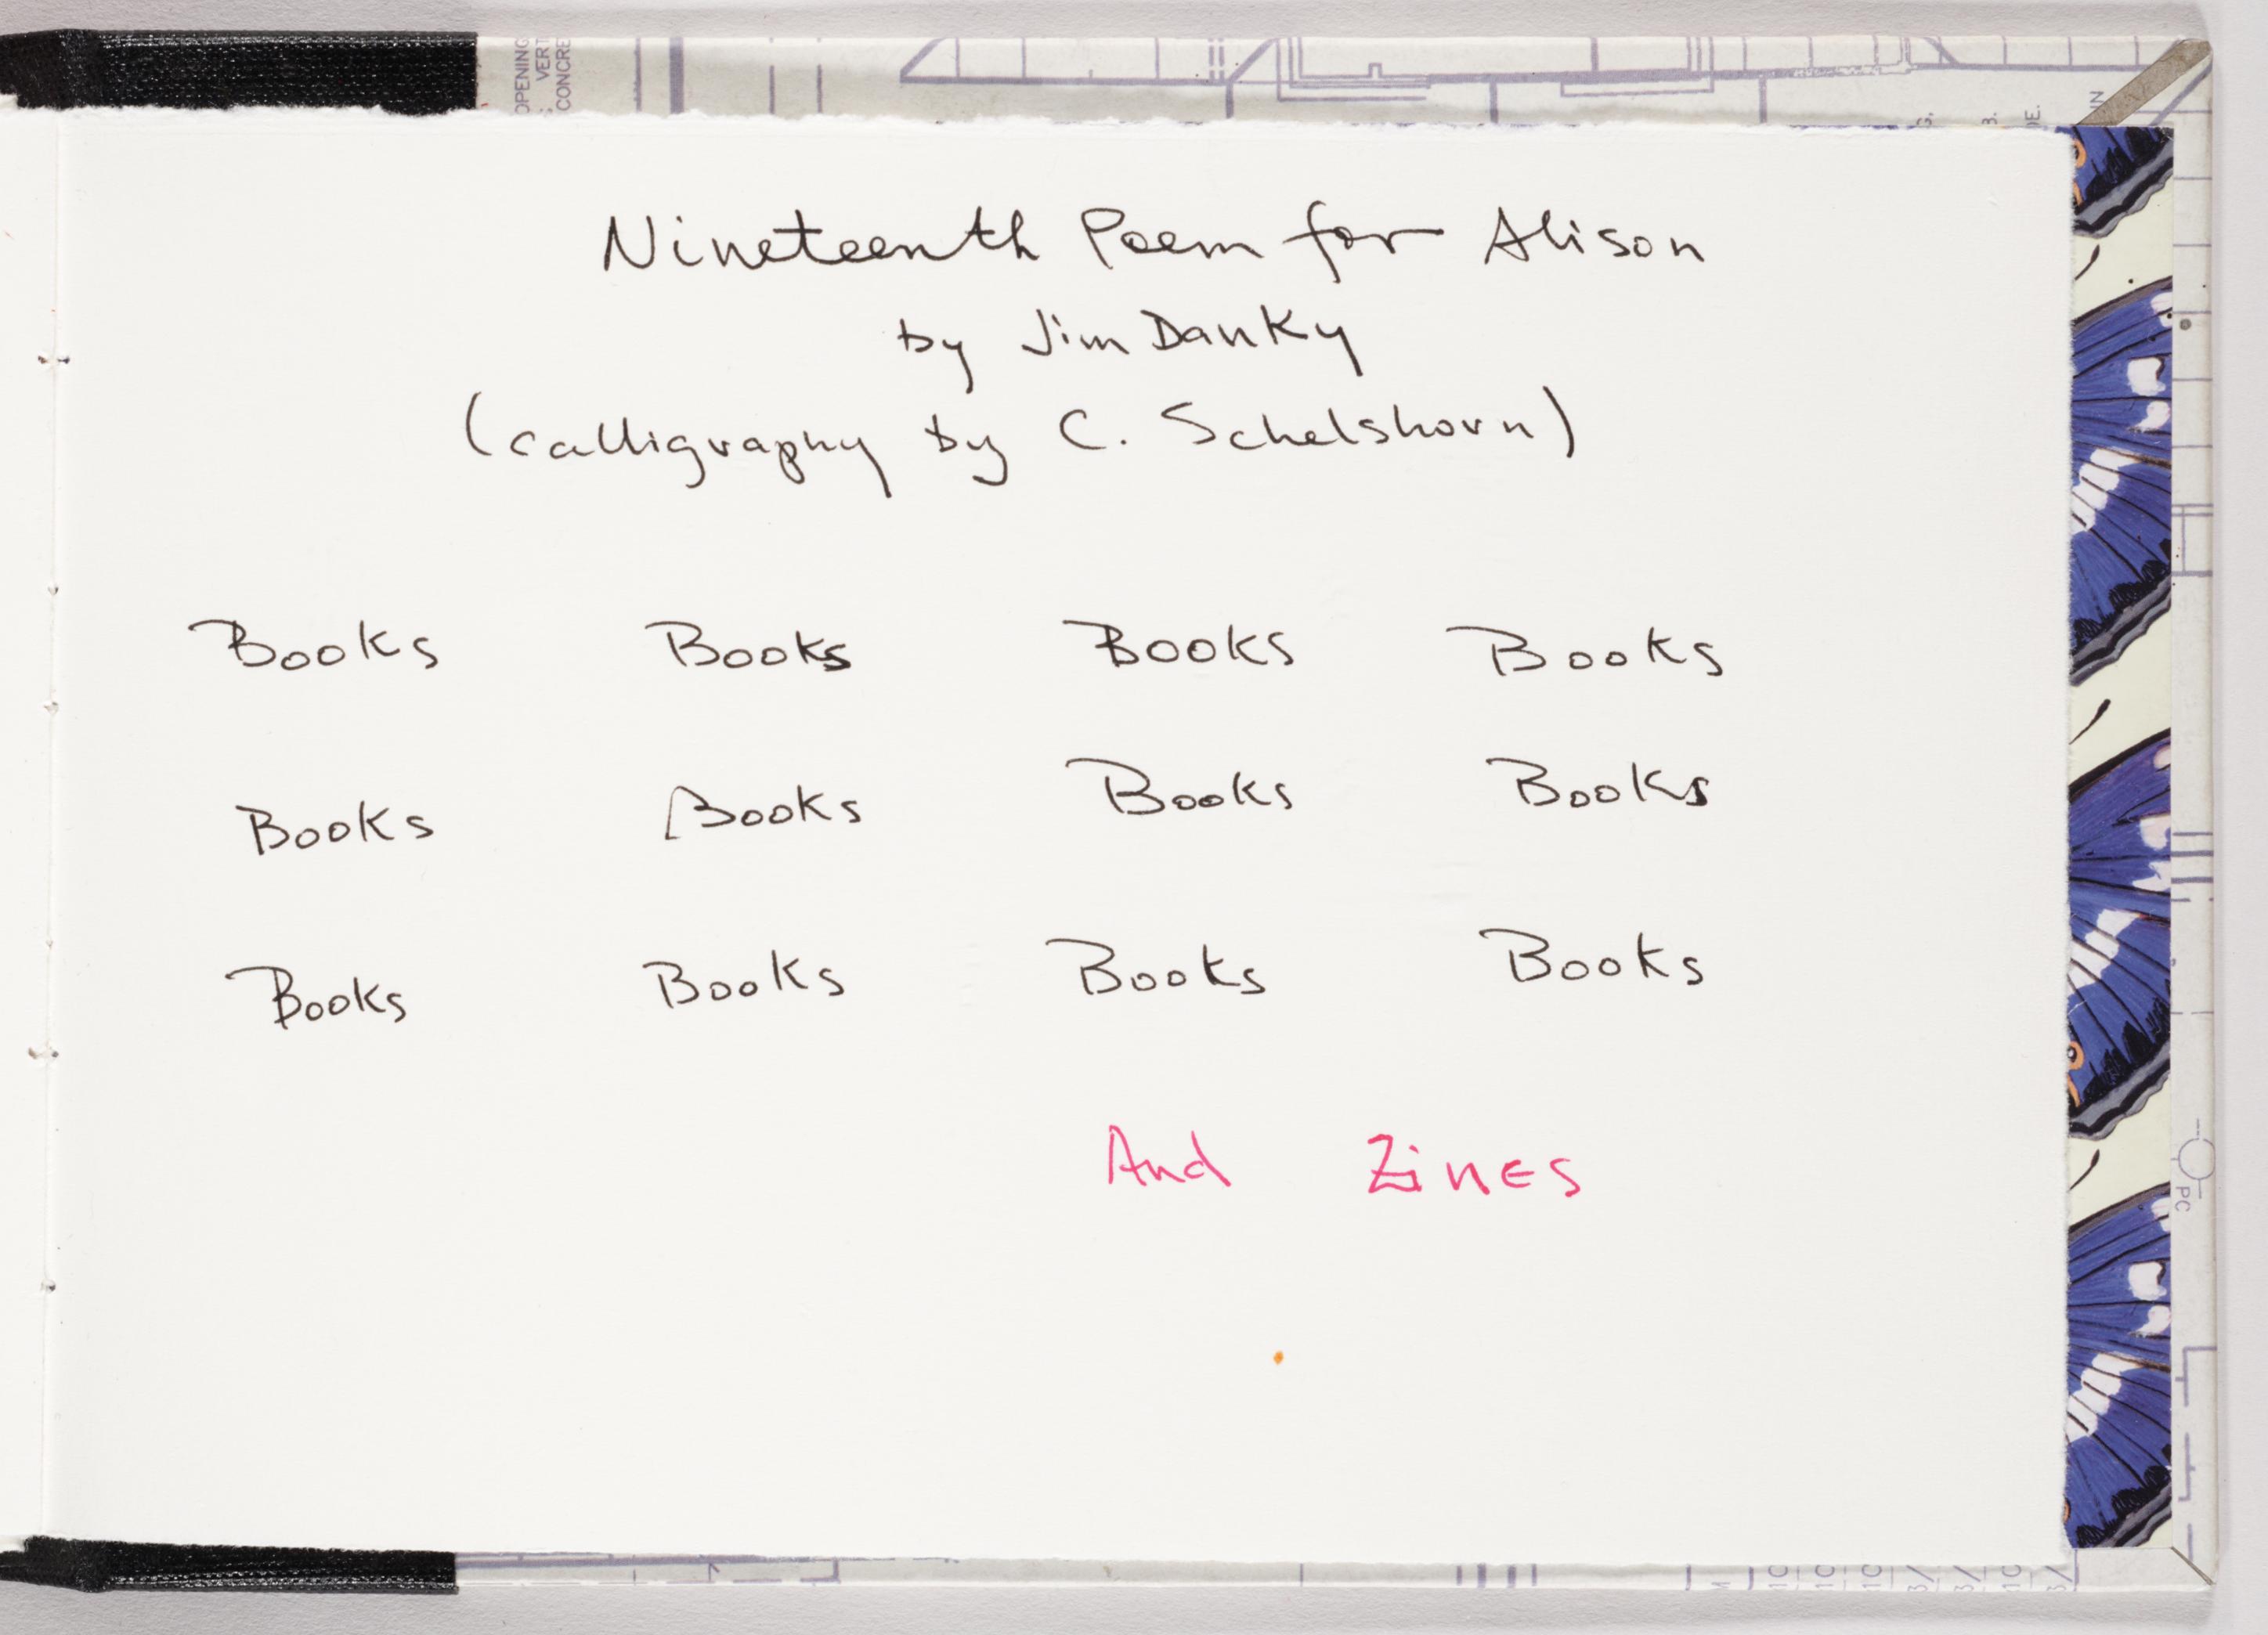 OPENING
VERT
CONCRE
IN
Nineteenth Poem for Alison
by Jim Danky
(calligraphy by C. Schelshorn)
Books Books Books Books
Books Books Books Books
Books Books Books Books
And Zines
PC